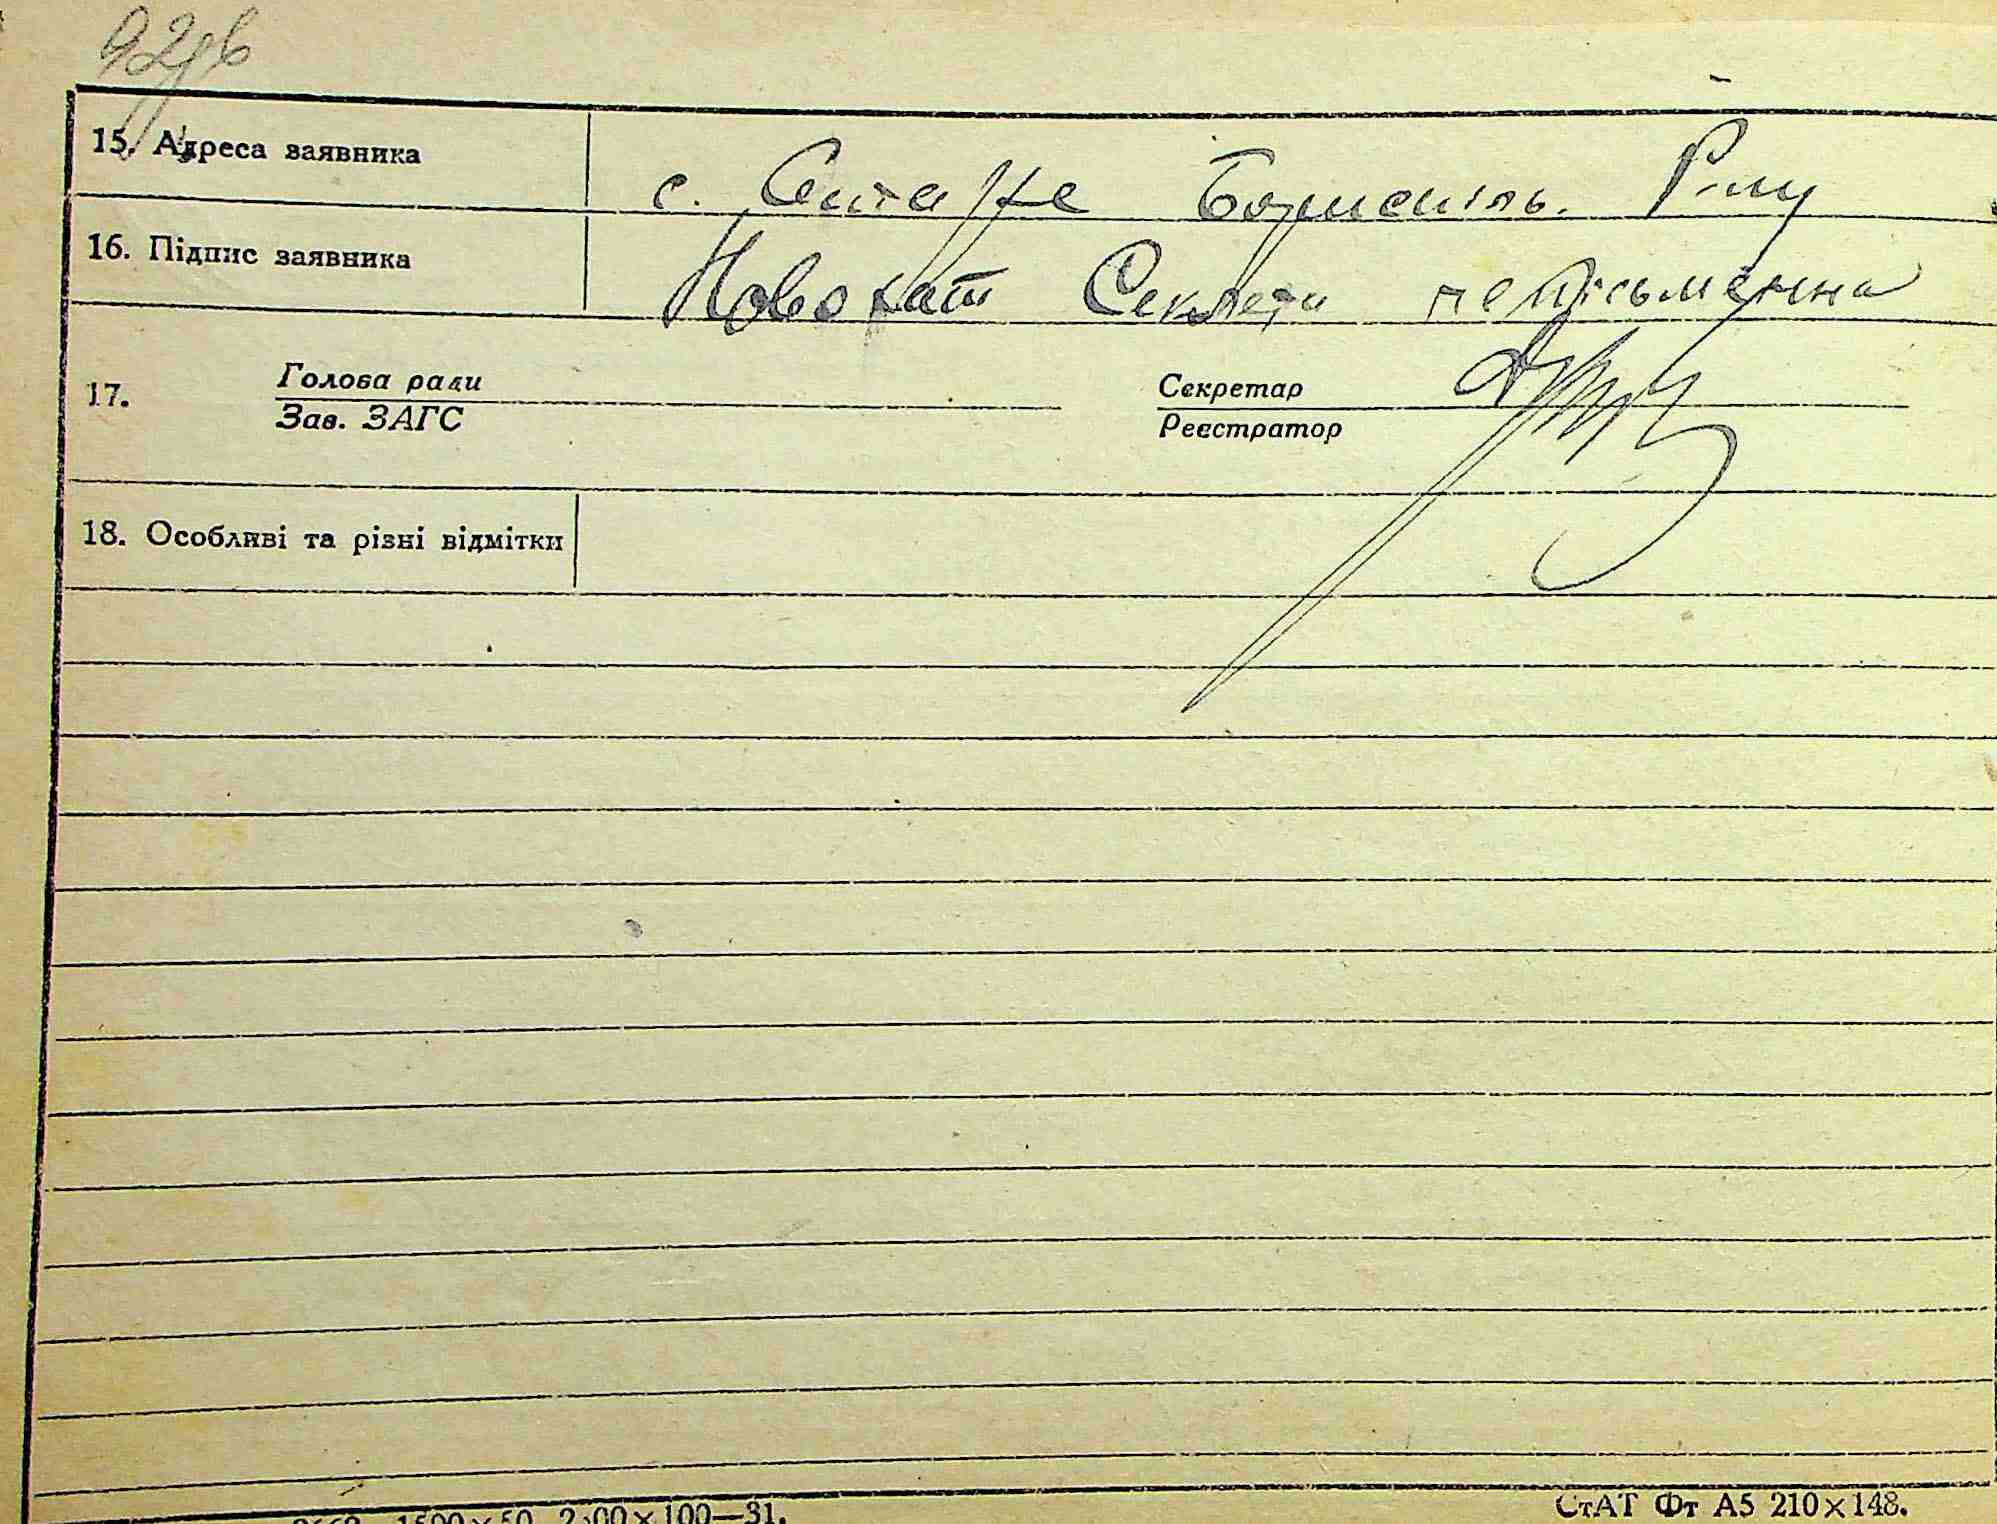 92зв
15. Адреса заявника с. Старе Бориспіль. Р-ну
16. Підпис заявника Новохат Секлета неписьменна
17. Голова ради Секретар
Зав. ЗАГС Реєстратор
18. Особливі та різні відмітки
1500×50 2500×100—31. СтАТ Фт А5 210×148.